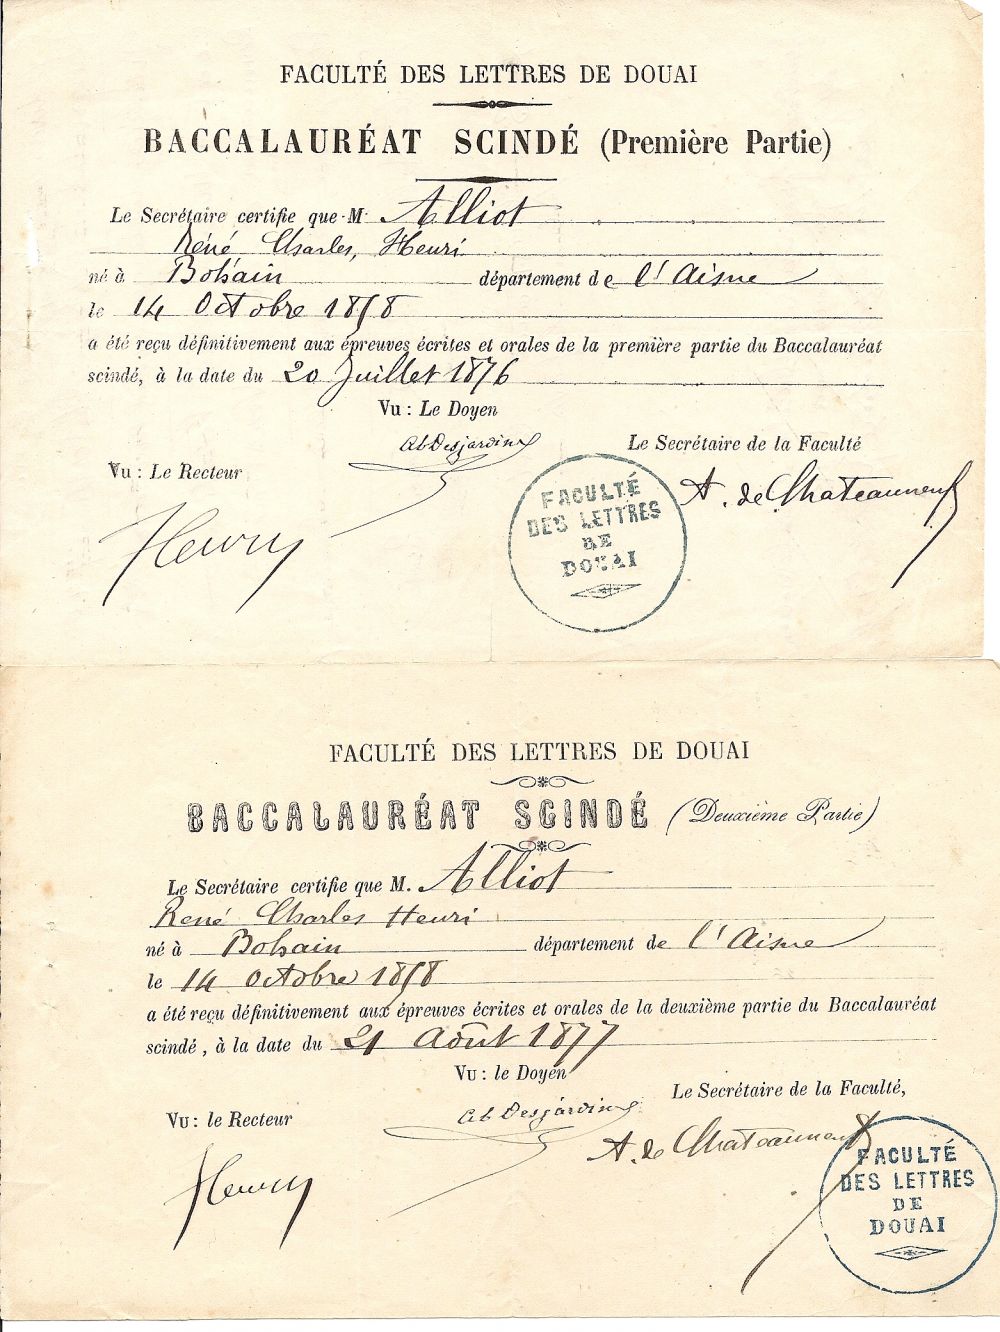 FACULTÉ DES LETTRES DE DOUAI
BACCALAURÉAT SCINDÉ (Première Partie)
Le Secrétaire certifie que M Alliot
René Charles, Henri
né à Bohain département de l'Aisne
le 14 Octobre 1858
a été reçu définitivement aux épreuves écrites et orales de la première partie du Baccalauréat
scindé, à la date du 20 Juillet 1876
Vu : Le Doyen
Ab Desjardins
Le Secrétaire de la Faculté
Vu : Le Recteur
A. de Chateauneuf
Fleury
FACULTÉ
DES LETTRES
DE
DOUAI
FACULTÉ DES LETTRES DE DOUAI
BACCALAURÉAT SCINDÉ (Deuxième Partie)
Le Secrétaire certifie que M. Alliot
René Charles Henri
né à Bohain département de l'Aisne
le 14 Octobre 1858
a été reçu définitivement aux épreuves écrites et orales de la deuxième partie du Baccalauréat
scindé, à la date du 21 Août 1877
Vu : le Doyen
Le Secrétaire de la Faculté,
Vu : le Recteur
Ab Desjardins
A. de Chateauneuf
Fleury
FACULTÉ
DES LETTRES
DE
DOUAI